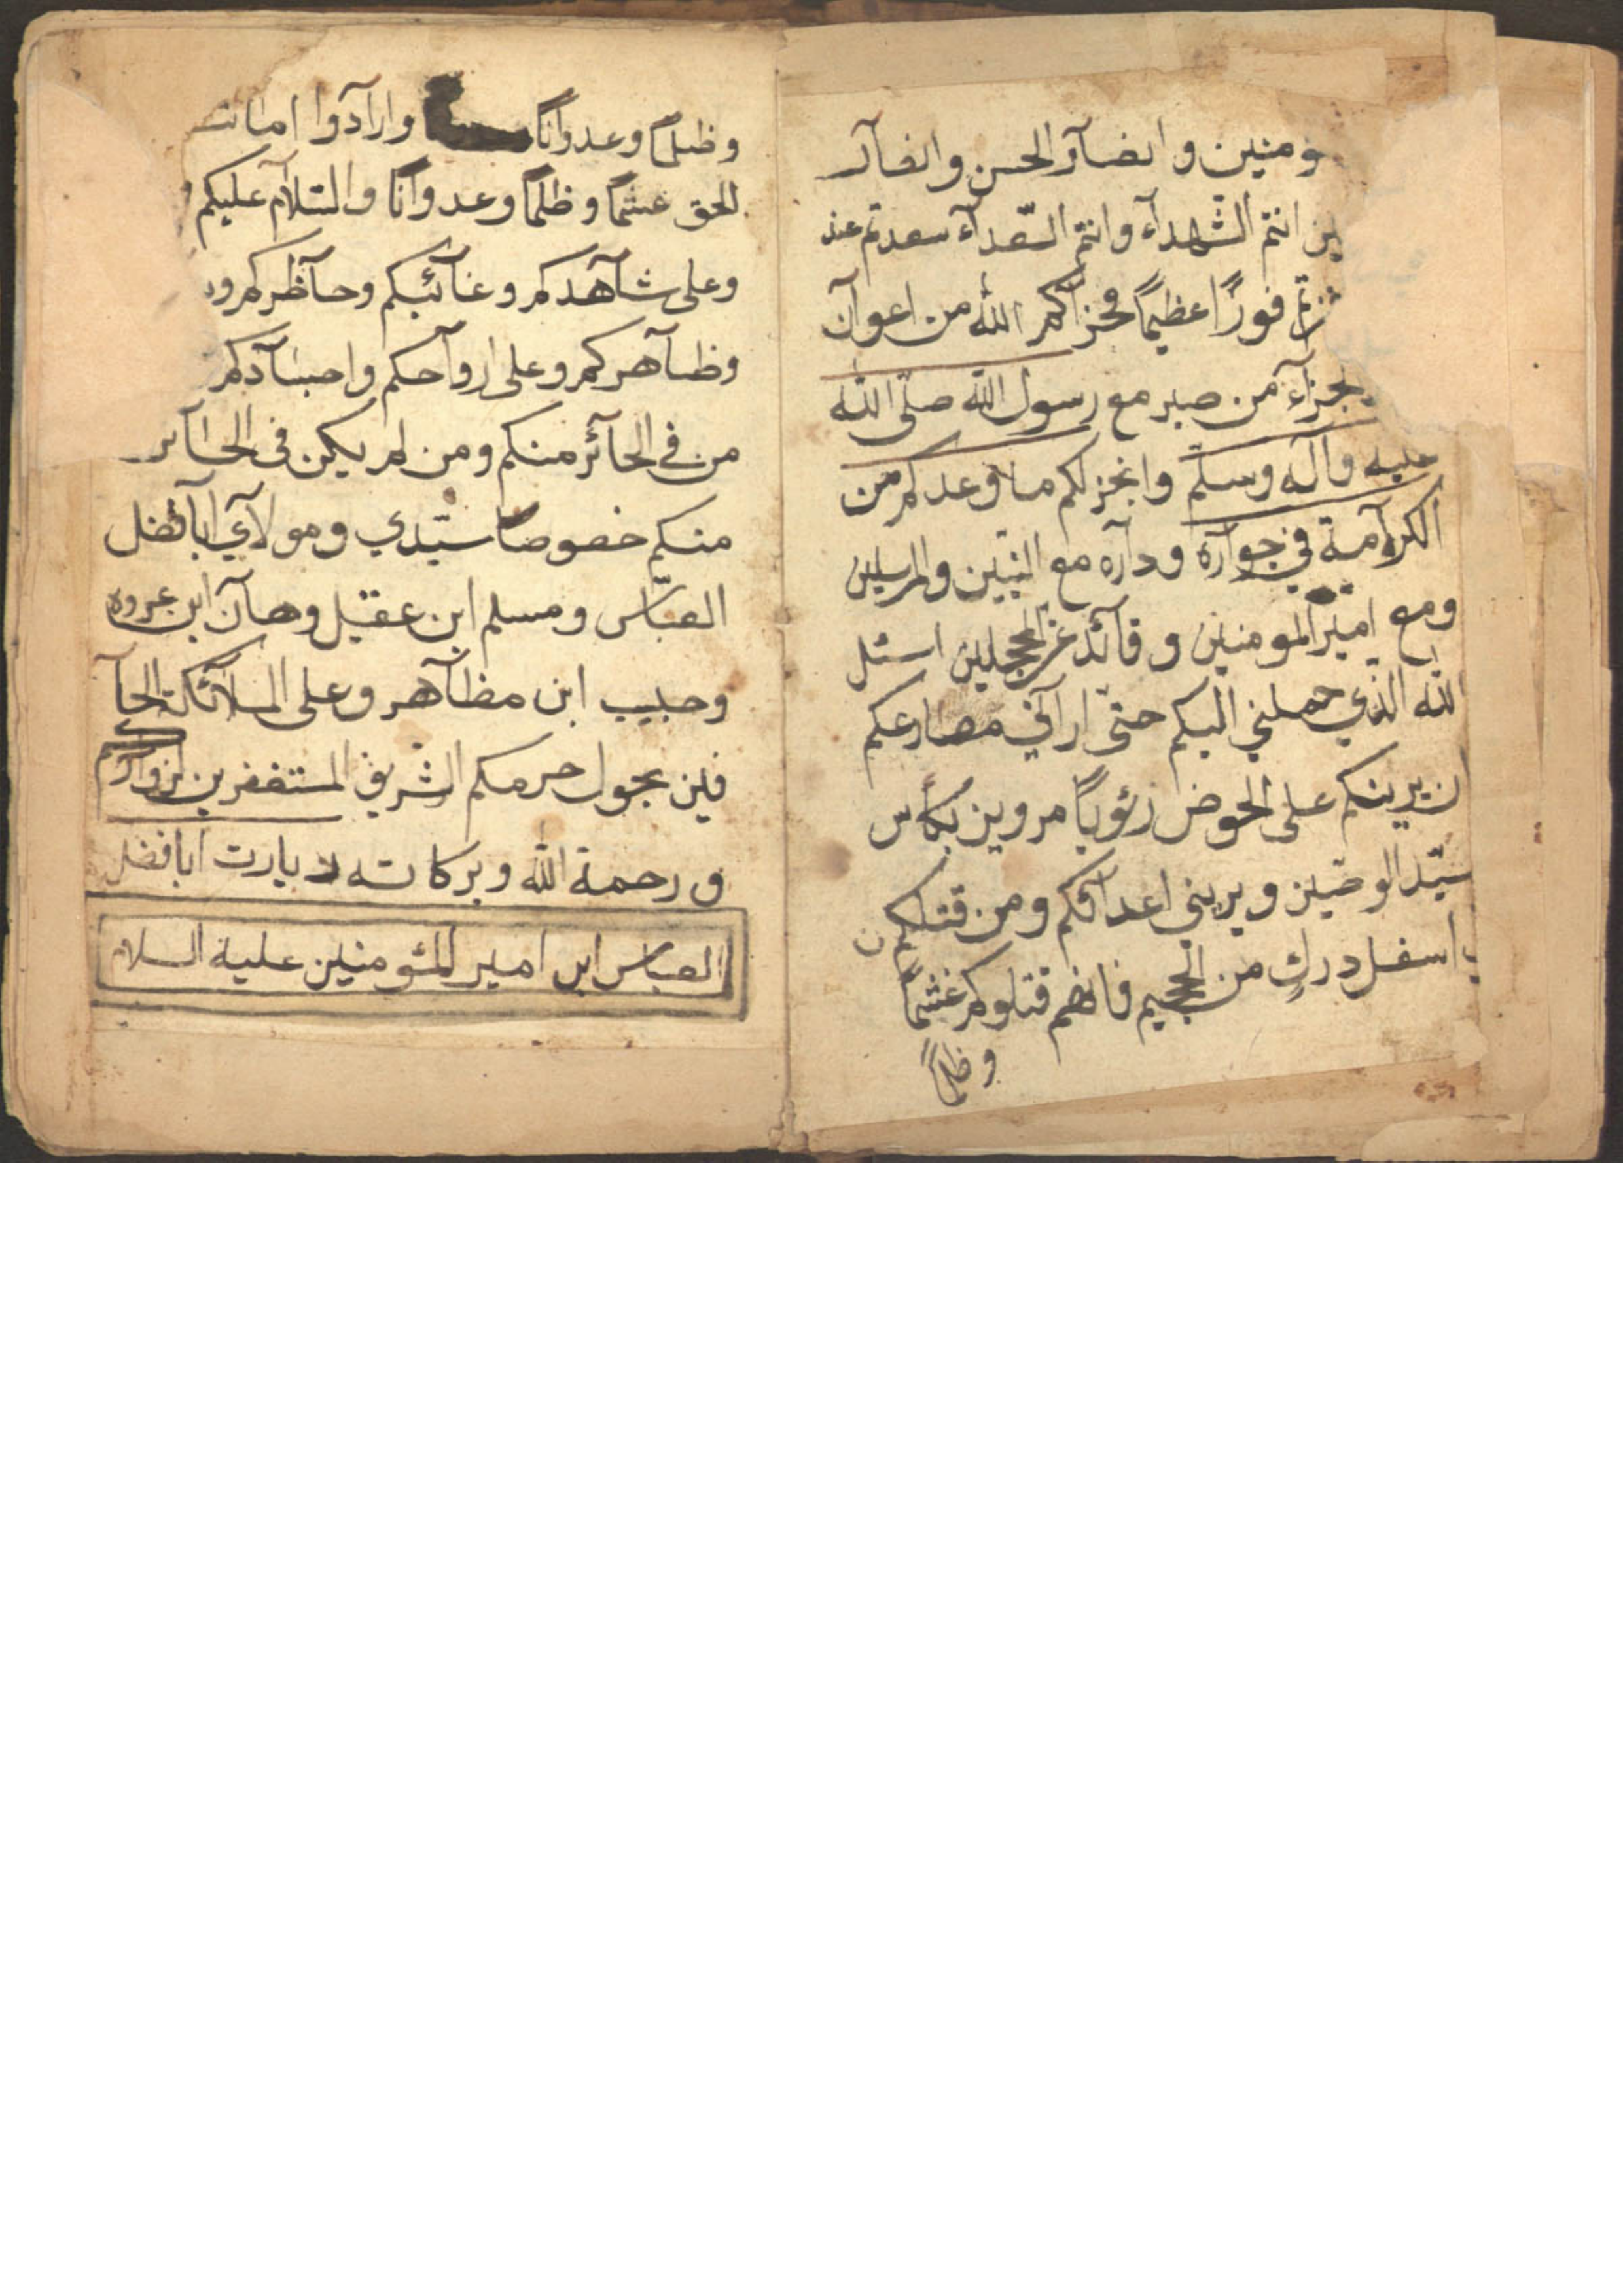 ؤمنين وانصآر الحسن وانصآر
ين انتم الشّهدآء وانتم السّعدآء سعدتم عند
فزتم فوزًا عظيمًا فجزآكم الله من اعوآن
جزآء من صبر مع رسول الله صلّى الله
عليه وآله وسلّم وانجز لكم ما وعدكم من
الكرآمة في جوآره ودآره مع النبّيين والمرسلين
ومع امير المومنين وقآئد غر المحجلين اسئل
الله الذي حملني اليكم حتّى ارآني مصارعكم
ان يرينكم على الحوض رؤيًا مروين بكأس
سيّد الوصّين ويريني اعدآئكم ومن قتلكم
اسفل درك من الجحيم فانهم قتلوكم غشمًا
وظلمًا
وظلمًا وعدوآنًا وارآدوا امات
الحق غشمًا وظلمًا وعدوآنًا والسّلآم عليكم
وعلى شآهدكم وغآئبكم وحآظركم
وظآهركم وعلى اروآحكم واجسآدكم
من في الحآئر منكم ومن لم يكن في الحآئر
منكم خصوصًا سيّدي ومولآي ابا فضل
العبّاس ومسلم ابن عقيل وهآن ابن عروه
وحبيب ابن مظآهر وعلى الملآئكة الحآ
فين بحول حرمكم الشريف المستغفرين لزوآركم
ورحمة الله وبركاته زيارت ابا فضل
العباس ابن امير المئومنين علية السلام